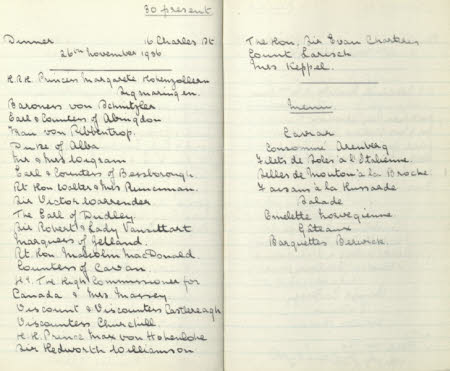 30 present
Dinner 16 Charles St
26th November 1936
H.R.H. Princess Margarete Hohenzollern
Sigmaringen.
Baroness von Schnitzler
Earl & Countess of Abingdon
Frau von Ribbentrop.
Duke of Alba
Mr & Mrs Wagram
Earl & Countess of Bessborough.
Rt Hon Walter & Mrs Runciman.
Sir Victor Warrender
The Earl of Dudley.
Sir Robert & Lady Vansittart
Marquess of Zetland.
Rt Hon. Malcolm MacDonald.
Countess of Cavan.
The High Commissioner for
Canada & Mrs. Massey.
Viscount & Viscountess Castlereagh
Viscountess Churchill.
H.H. Prince Max von Hohenlohe
Sir Hedworth Williamson
The Hon. Sir Evan Charteris
Count Larisch
Mrs Keppel.
Menu
Caviar
Consommé Arenberg
Filets de Soles à l'Italienne.
Selles de Mouton à la Broche
Faisans à la Hussarde
Salade
Omelette Norvegienne
Gâteaux
Barquettes Berwick.